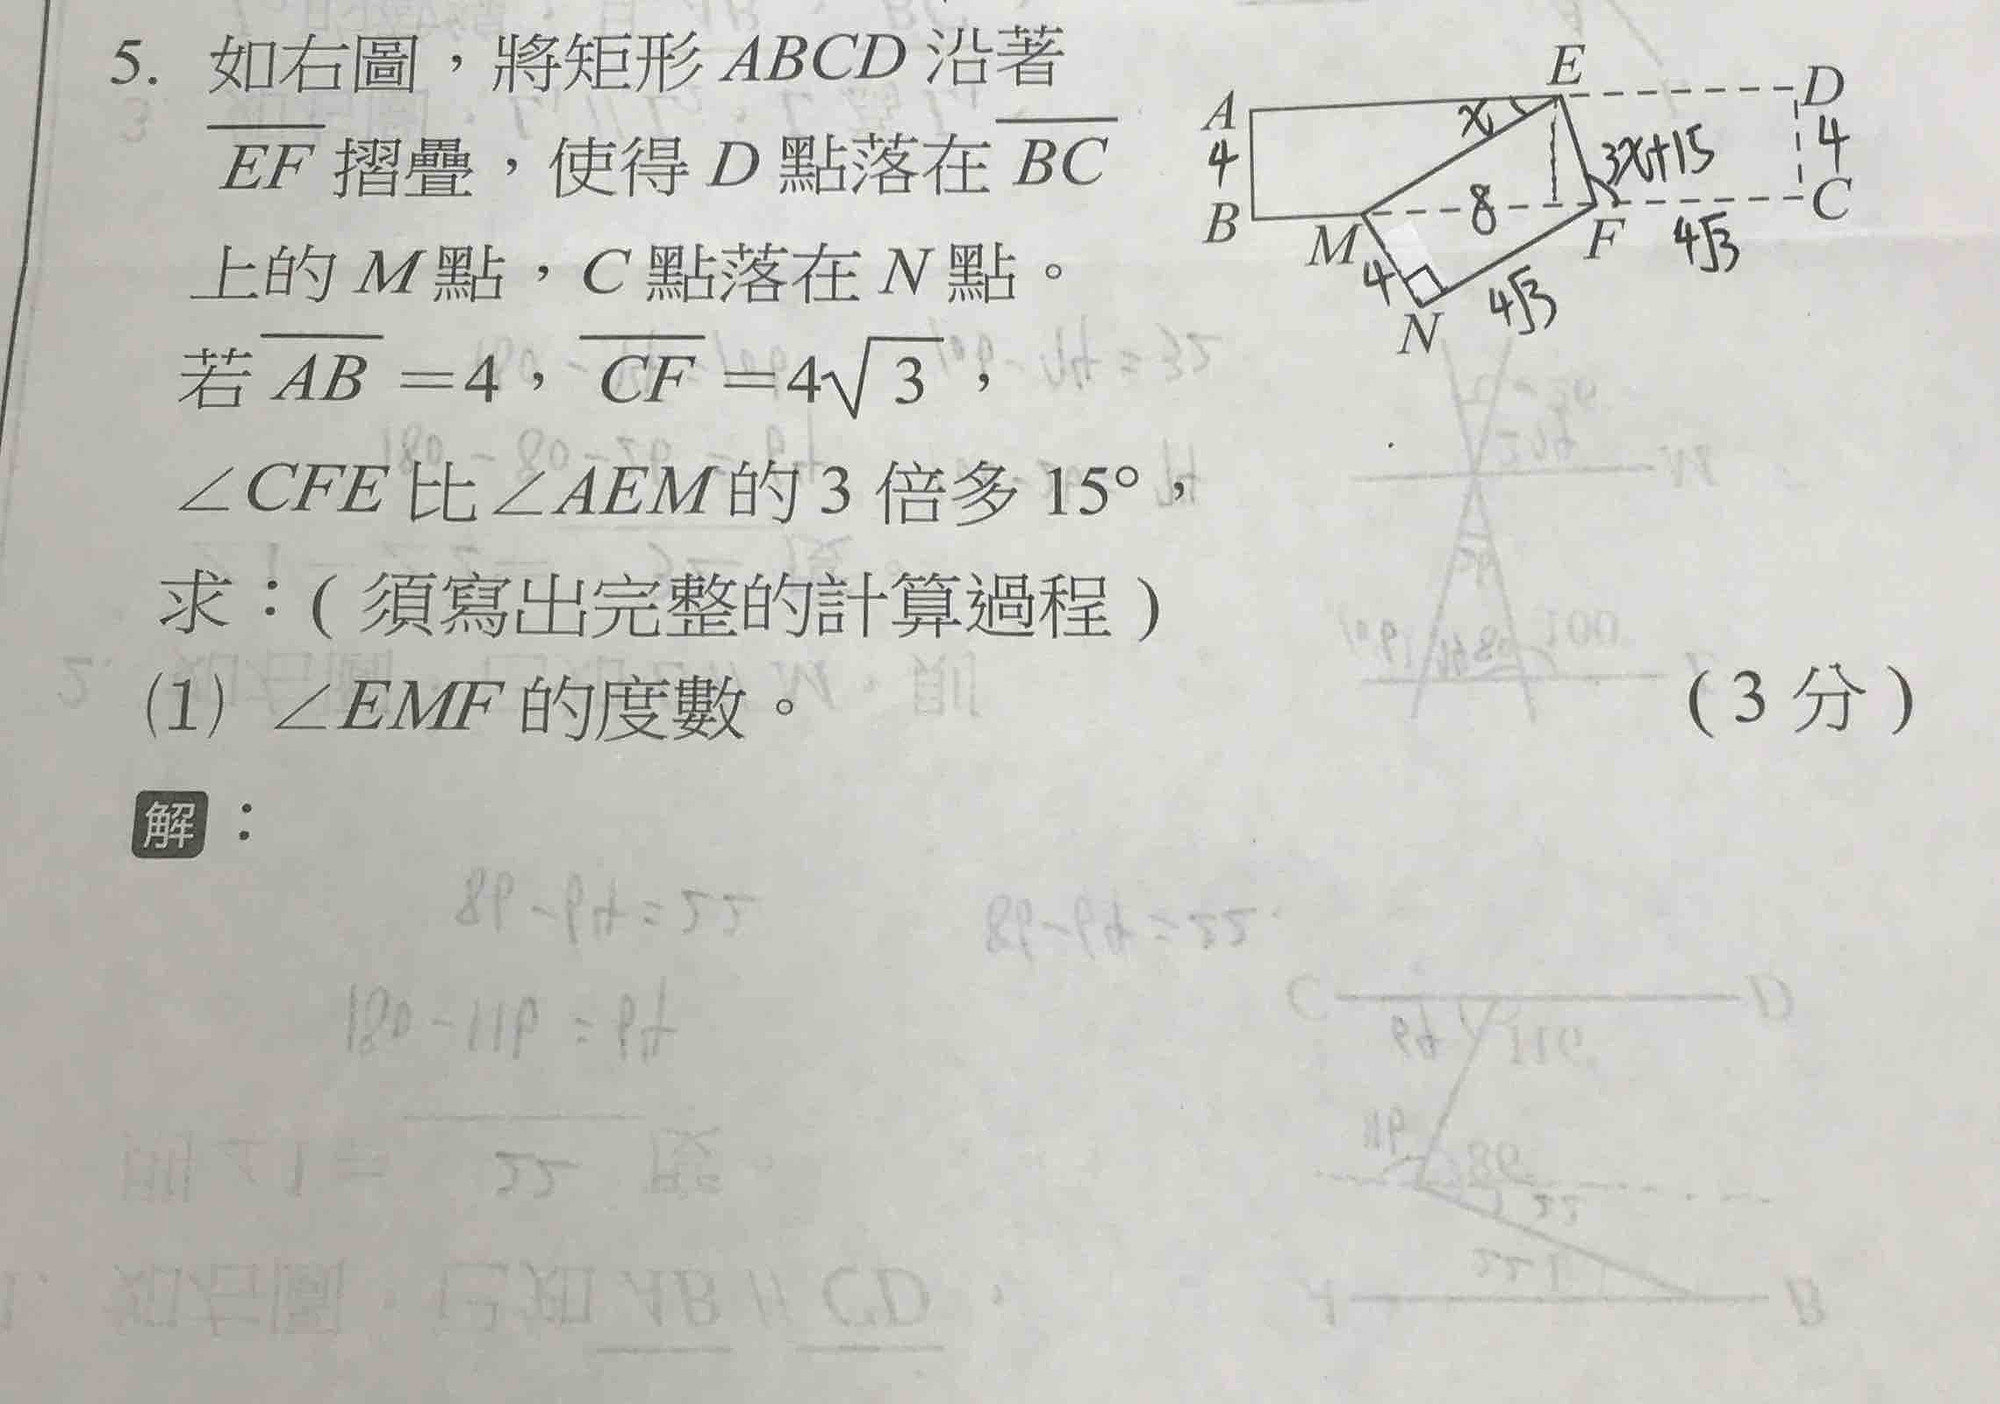 5. 如右圖，將矩形 ABCD 沿著
EF 摺疊，使得 D 點落在 BC
上的 M 點，C 點落在 N 點。
若 AB =4，CF =4√3，
∠CFE 比 ∠AEM 的 3 倍多 15°，
求：( 須寫出完整的計算過程 )
(1) ∠EMF 的度數。
( 3 分 )
解：
A E D
x
4 3x+15 4
B M 8 F C
4 4√3 4√3
N